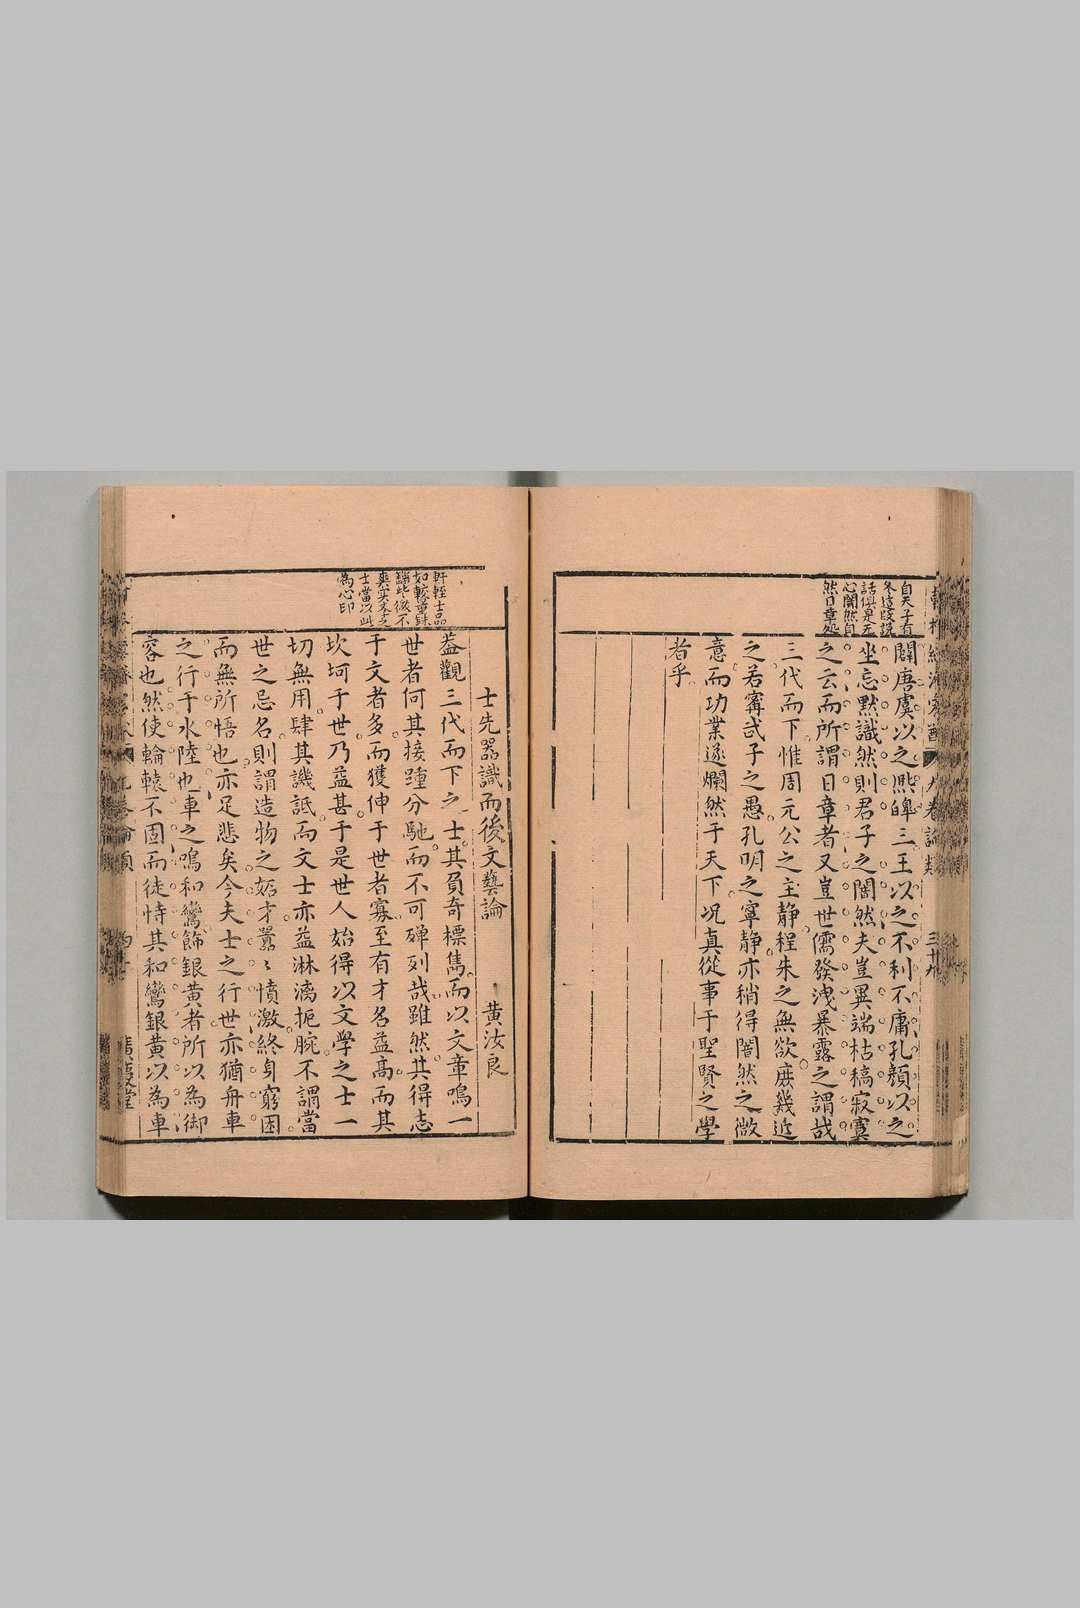 自天子有
冬這段說
話俱是无
心闇然自
然日章処
闢唐虞以之熙皞三王以之不利不庸孔顏以之
坐忘默識然則君子之闇然夫豈異端枯稿寂寞
之云而所謂日章者又豈世儒發洩暴露之謂哉
三代而下惟周元公之主靜程朱之無欲庶幾近
之若甯武子之愚孔明之寧靜亦稍得闇然之微
意而功業遂爛然于天下况真從事于聖賢之學
者乎
九卷論類
三十九
軒輊士品
士當以此
為心印
士先器識而後文藝論
黃汝良
葢觀三代而下之士其負奇標雋而以文章鳴一
世者何其接踵分馳而不可殫列哉雖然其得志
于文者多而獲伸于世者寡至有才名益高而其
坎坷于世乃益甚于是世人始得以文學之士一
切無用肆其譏詆而文士亦益淋漓扼腕不謂當
世之忌名則謂造物之妬才嚣〻憤激終身窮困
而無所悟也亦足悲矣今夫士之行世亦猶舟車
之行于水陸也車之鳴和鸞飾銀黃者所以為御
容也然使輪轅不固而徒恃其和鸞銀黃以為車
九卷論類
四十
廣慶堂